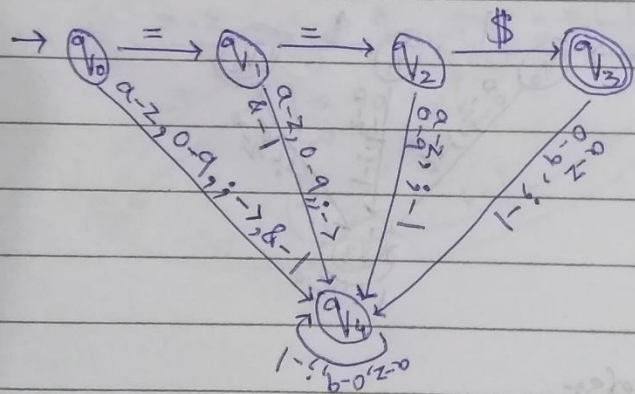 → q0 = q1 = q2 $ q3
a-z, 0-9, ; - >, & - 1
a-z, 0-9, ; - >
& - 1
a-z
0-9, ; - 1
a-z
0-9, ; - 1
q4
a-z, 0-9, ; - 1